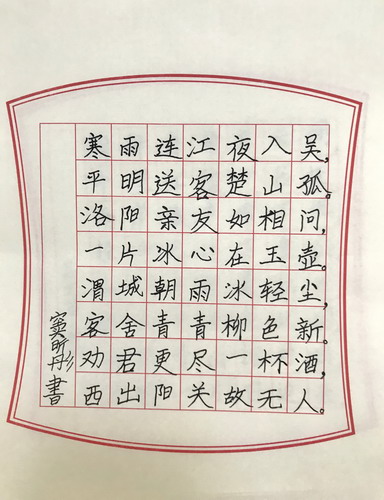 寒雨连江夜入吴,
平明送客楚山孤。
洛阳亲友如相问,
一片冰心在玉壶。
渭城朝雨冰轻尘,
客舍青青柳色新。
劝君更尽一杯酒,
西出阳关故无人。
窦昕彤書